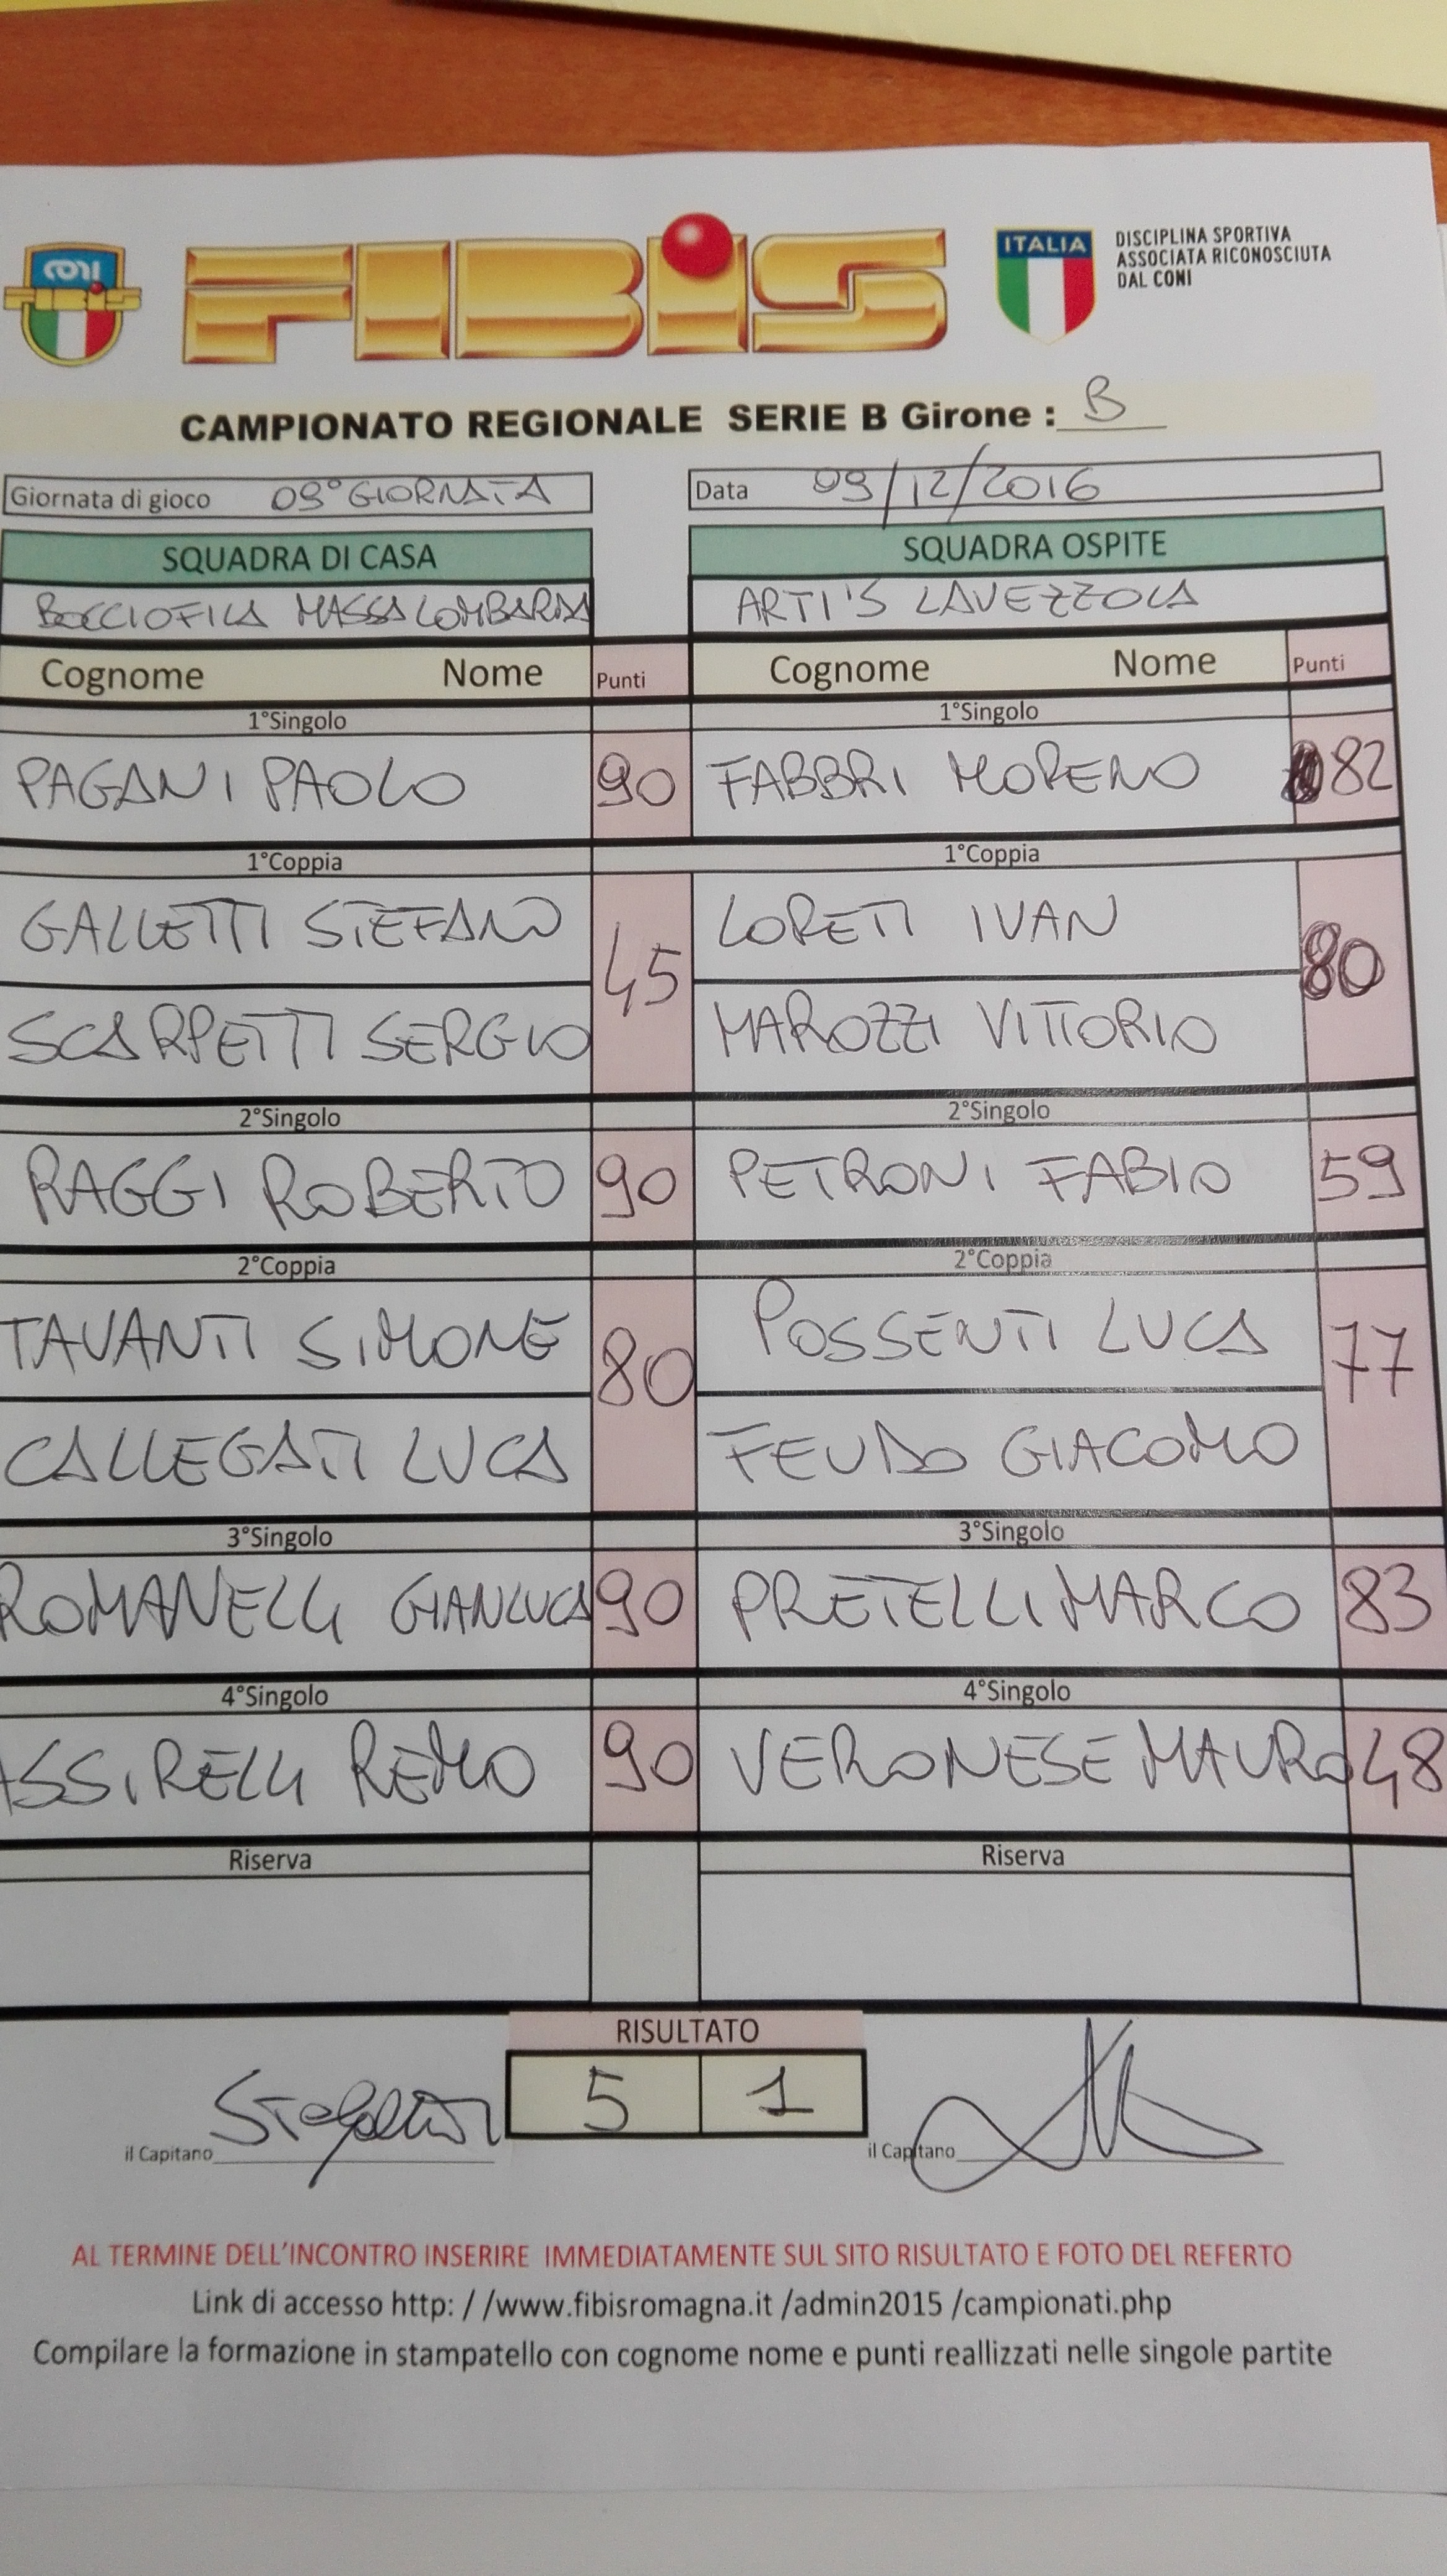 CONI
FIBIS
FIBiS
ITALIA
DISCIPLINA SPORTIVA
ASSOCIATA RICONOSCIUTA
DAL CONI
CAMPIONATO REGIONALE SERIE B Girone : B
Giornata di gioco 09° GIORNATA
Data 09/12/2016
SQUADRA DI CASA
SQUADRA OSPITE
BOCCIOFILA MASSA LOMBARDA
ARTI'S LAVEZZOLA
Cognome Nome Punti
Cognome Nome Punti
1°Singolo 1°Singolo
PAGANI PAOLO 90 FABBRI MORENO 82
1°Coppia 1°Coppia
GALLETTI STEFANO 45 LORETI IVAN 80
SCARPETTI SERGIO MAROZZI VITTORIO
2°Singolo 2°Singolo
RAGGI ROBERTO 90 PETRONI FABIO 59
2°Coppia 2°Coppia
TAVANTI SIMONE 80 POSSENTI LUCA 77
CALLEGATI LUCA FEUDO GIACOMO
3°Singolo 3°Singolo
ROMANELLI GIANLUCA 90 PRETELLI MARCO 83
4°Singolo 4°Singolo
ASSIRELLI REMO 90 VERONESE MAURO 48
Riserva Riserva
RISULTATO
5 1
il Capitano
il Capitano
AL TERMINE DELL'INCONTRO INSERIRE IMMEDIATAMENTE SUL SITO RISULTATO E FOTO DEL REFERTO
Link di accesso http: / /www.fibisromagna.it /admin2015 /campionati.php
Compilare la formazione in stampatello con cognome nome e punti reallizzati nelle singole partite